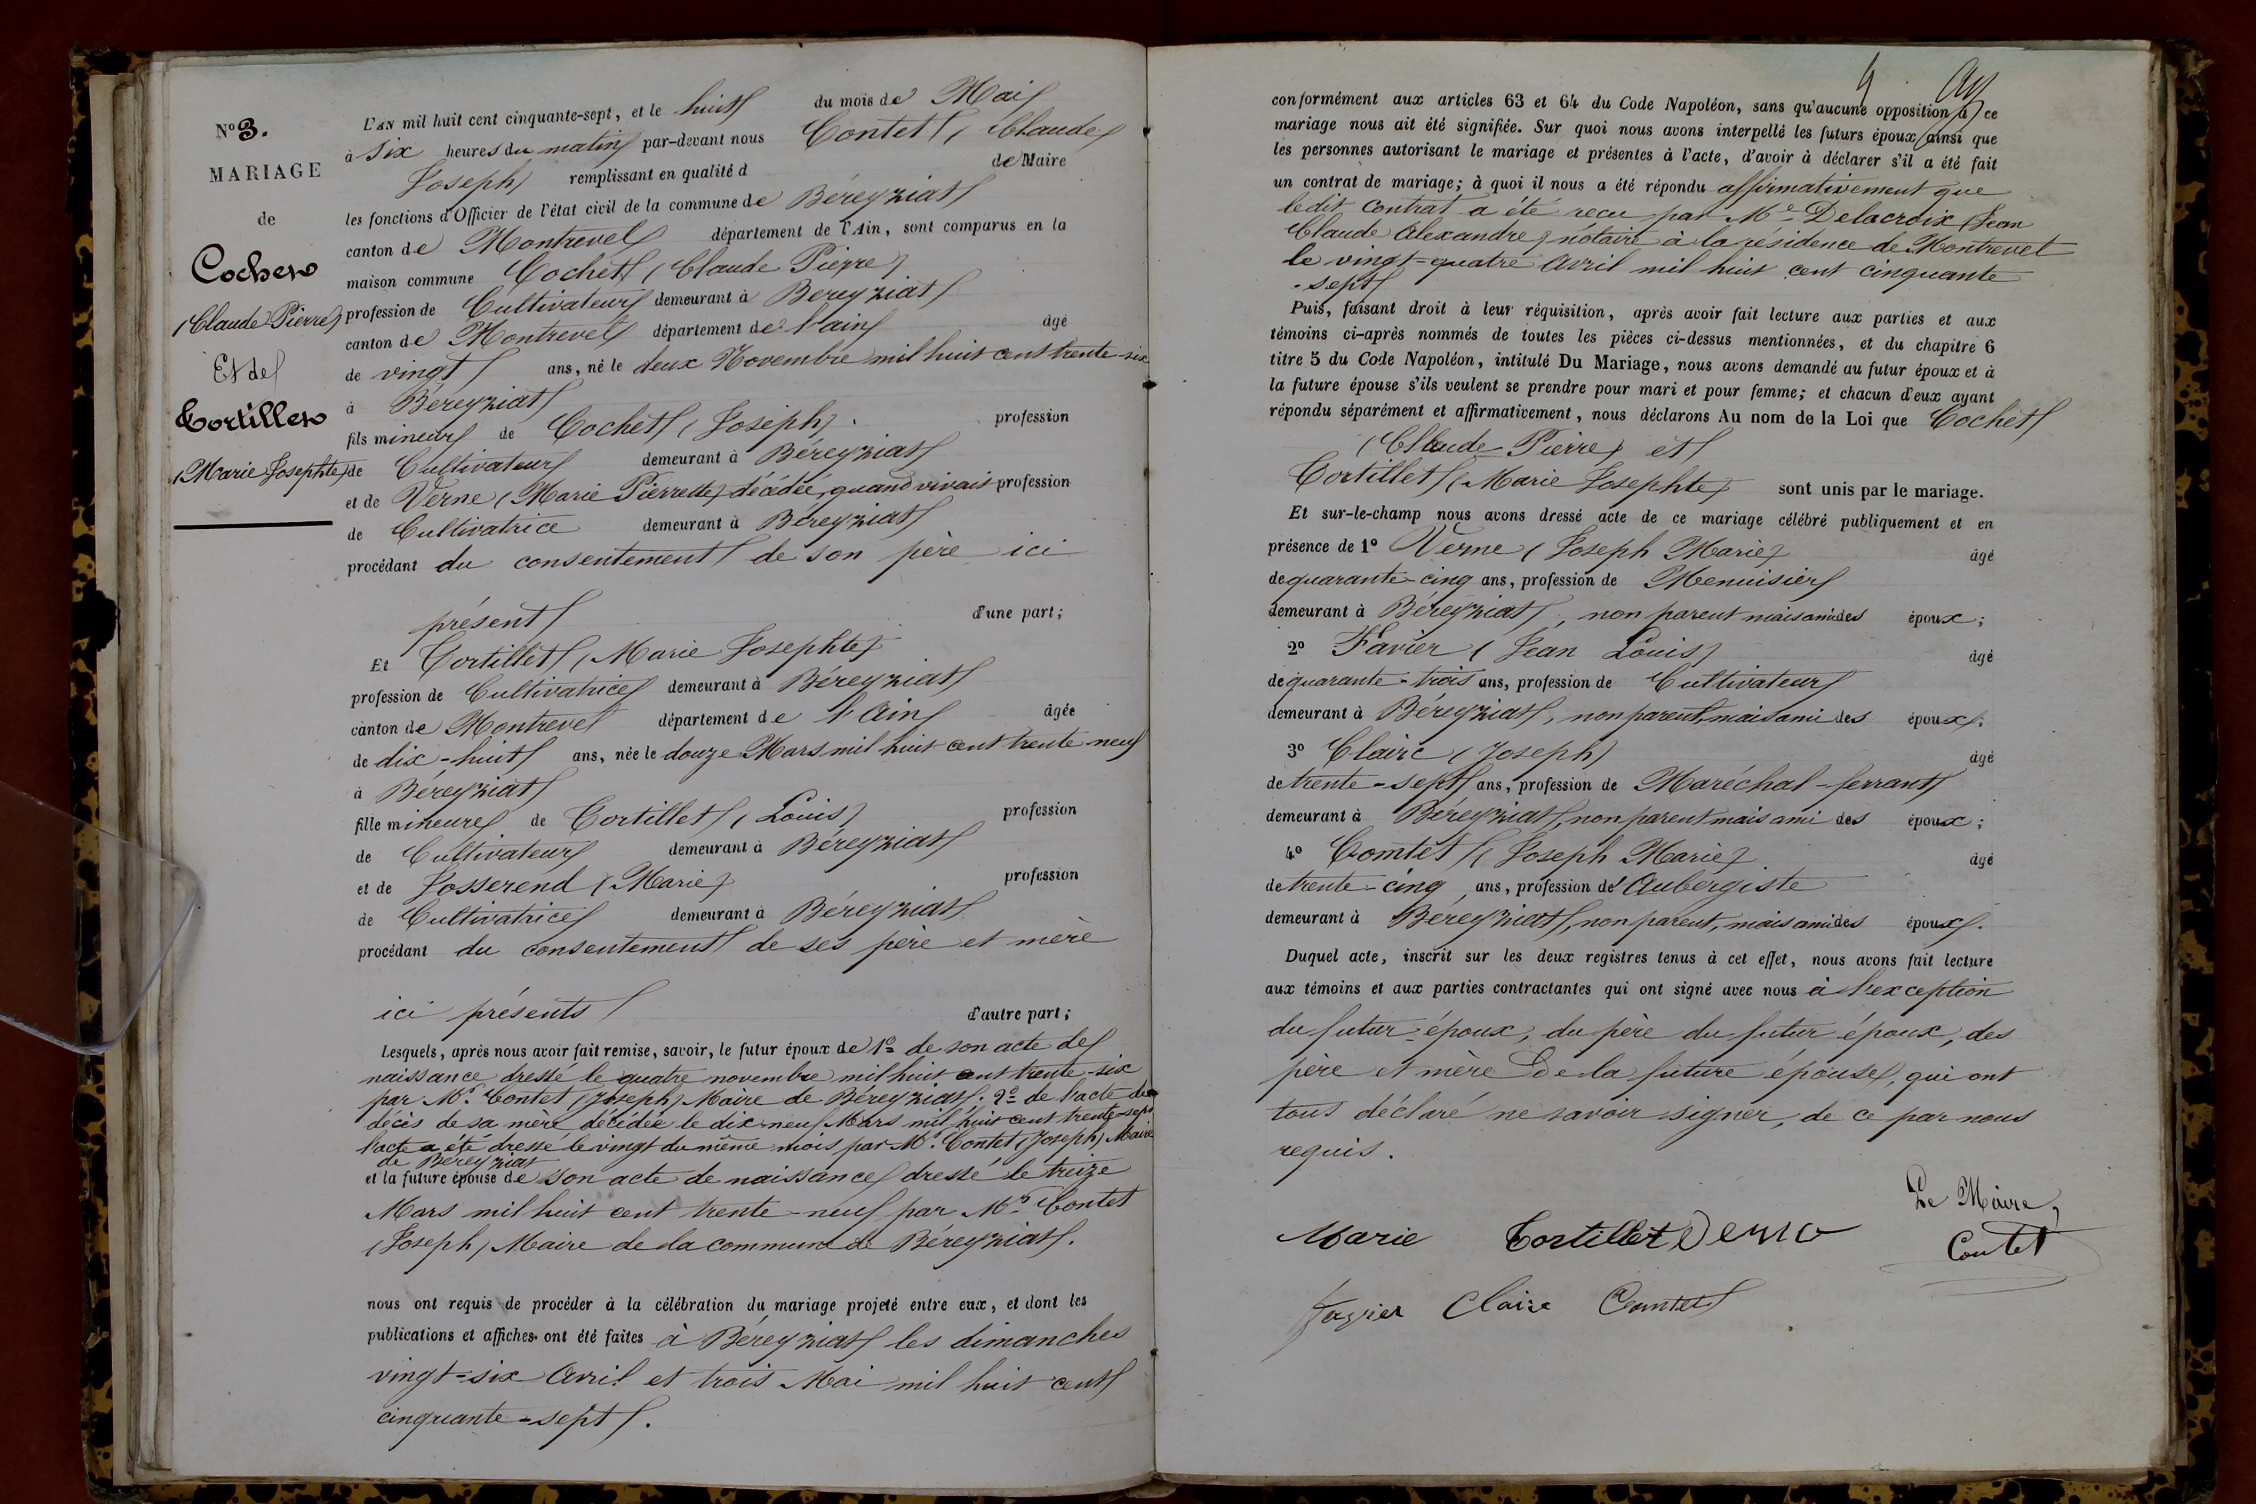 N° 3.
MARIAGE
de
Cochet
(Claude Pierre)
Et de
Tortillet
(Marie Josephte)
L'AN mil huit cent cinquante-sept, et le huit du mois de Mai
à six heures du matin par-devant nous Contet (Claude
Joseph) remplissant en qualité d de Maire
les fonctions d'Officier de l'état civil de la commune de Béreyziat
canton de Montrevel département de l'Ain, sont comparus en la
maison commune Cochet (Claude Pierre)
profession de Cultivateur demeurant à Bereyziat
canton de Montrevel département de l'ain âgé
de vingt ans, né le deux Novembre mil huit cent trente-six
à Béreyziat
fils mineur de Cochet (Joseph). profession
de Cultivateur demeurant à Béreyziat
et de Verne (Marie Pierrette) décédée, quand vivait profession
de Cultivatrice demeurant à Béreyziat
procédant du consentement de son père ici
présent d'une part;
Et Tortillet (Marie Josephte)
profession de Cultivatrice demeurant à Béreyziat
canton de Montrevel département de l'Ain âgée
de dix-huit ans, née le douze Mars mil huit cent trente neuf
à Béreyziat
fille mineure de Tortillet (Louis) profession
de Cultivateur demeurant à Béreyziat
et de Josserend (Marie) profession
de Cultivatrice demeurant à Béreyziat
procédant du consentement de ses père et mère
ici présents d'autre part;
Lesquels, après nous avoir fait remise, savoir, le futur époux de 1° de son acte de
naissance dressé le quatre novembre mil huit cent trente-six
par Mr. Contet (Joseph) Maire de Béreyziat. 2° de l'acte de
décès de sa mère décédée le dix-neuf Mars mil huit cent trente-sept
l'acte a été dressé le vingt du même mois par Mr. Contet (Joseph) Maire
de Béreyziat
et la future épouse de son acte de naissance dressé le treize
Mars mil huit cent trente-neuf par Mr. Contet
(Joseph) Maire de la commune de Béreyziat.
nous ont requis de procéder à la célébration du mariage projeté entre eux, et dont les
publications et affiches ont été faites à Béreyziat les dimanches
vingt-six Avril et trois Mai mil huit cent
cinquante-sept.
conformément aux articles 63 et 64 du Code Napoléon, sans qu'aucune opposition à ce
mariage nous ait été signifiée. Sur quoi nous avons interpellé les futurs époux ainsi que
les personnes autorisant le mariage et présentes à l'acte, d'avoir à déclarer s'il a été fait
un contrat de mariage; à quoi il nous a été répondu affirmativement que
ledit contrat a été reçu par Me. Delacroix (Jean
Claude Alexandre) notaire à la résidence de Montrevel
le vingt-quatre Avril mil huit cent cinquante
-sept
Puis, faisant droit à leur réquisition, après avoir fait lecture aux parties et aux
témoins ci-après nommés de toutes les pièces ci-dessus mentionnées, et du chapitre 6
titre 5 du Code Napoléon, intitulé Du Mariage, nous avons demandé au futur époux et à
la future épouse s'ils veulent se prendre pour mari et pour femme; et chacun d'eux ayant
répondu séparément et affirmativement, nous déclarons Au nom de la Loi que Cochet
(Claude-Pierre) et
Tortillet (Marie Josephte) sont unis par le mariage.
Et sur-le-champ nous avons dressé acte de ce mariage célébré publiquement et en
présence de 1° Verne (Joseph Marie) âgé
de quarante-cinq ans, profession de Menuisier
demeurant à Béreyziat, non parent mais ami des époux;
2° Favier (Jean Louis) âgé
de quarante-trois ans, profession de Cultivateur
demeurant à Béreyziat, non parent, mais ami des époux;
3° Claire (Joseph) âgé
de trente-sept ans, profession de Maréchal-ferrant
demeurant à Béreyziat, non parent mais ami des époux;
4° Comtet (Joseph Marie) âgé
de trente-cinq ans, profession d'Aubergiste
demeurant à Béreyziat, non parent, mais ami des époux.
Duquel acte, inscrit sur les deux registres tenus à cet effet, nous avons fait lecture
aux témoins et aux parties contractantes qui ont signé avec nous à l'exception
du futur-époux, du père du futur époux, des
père et mère de la future épouse, qui ont
tous déclaré ne savoir signer, de ce par nous
requis.
Le Maire,
Marie Tortillet Verne Contet
favier Claire Comtet